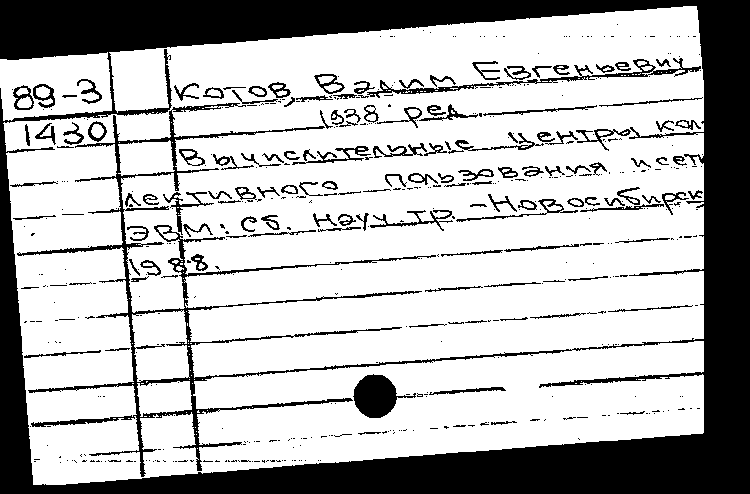 89-3 Котов, Вадим Евгеньевич
1430 1938 ред
Вычислительные центры кол
лективного пользования и сети
ЭВМ: Сб. науч. тр. - Новосибирск
1988.